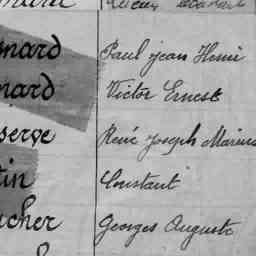 nard Paul jean Henri
nard Victor Ernest
serve René Joseph Marius
tin Constant
cher Georges Auguste